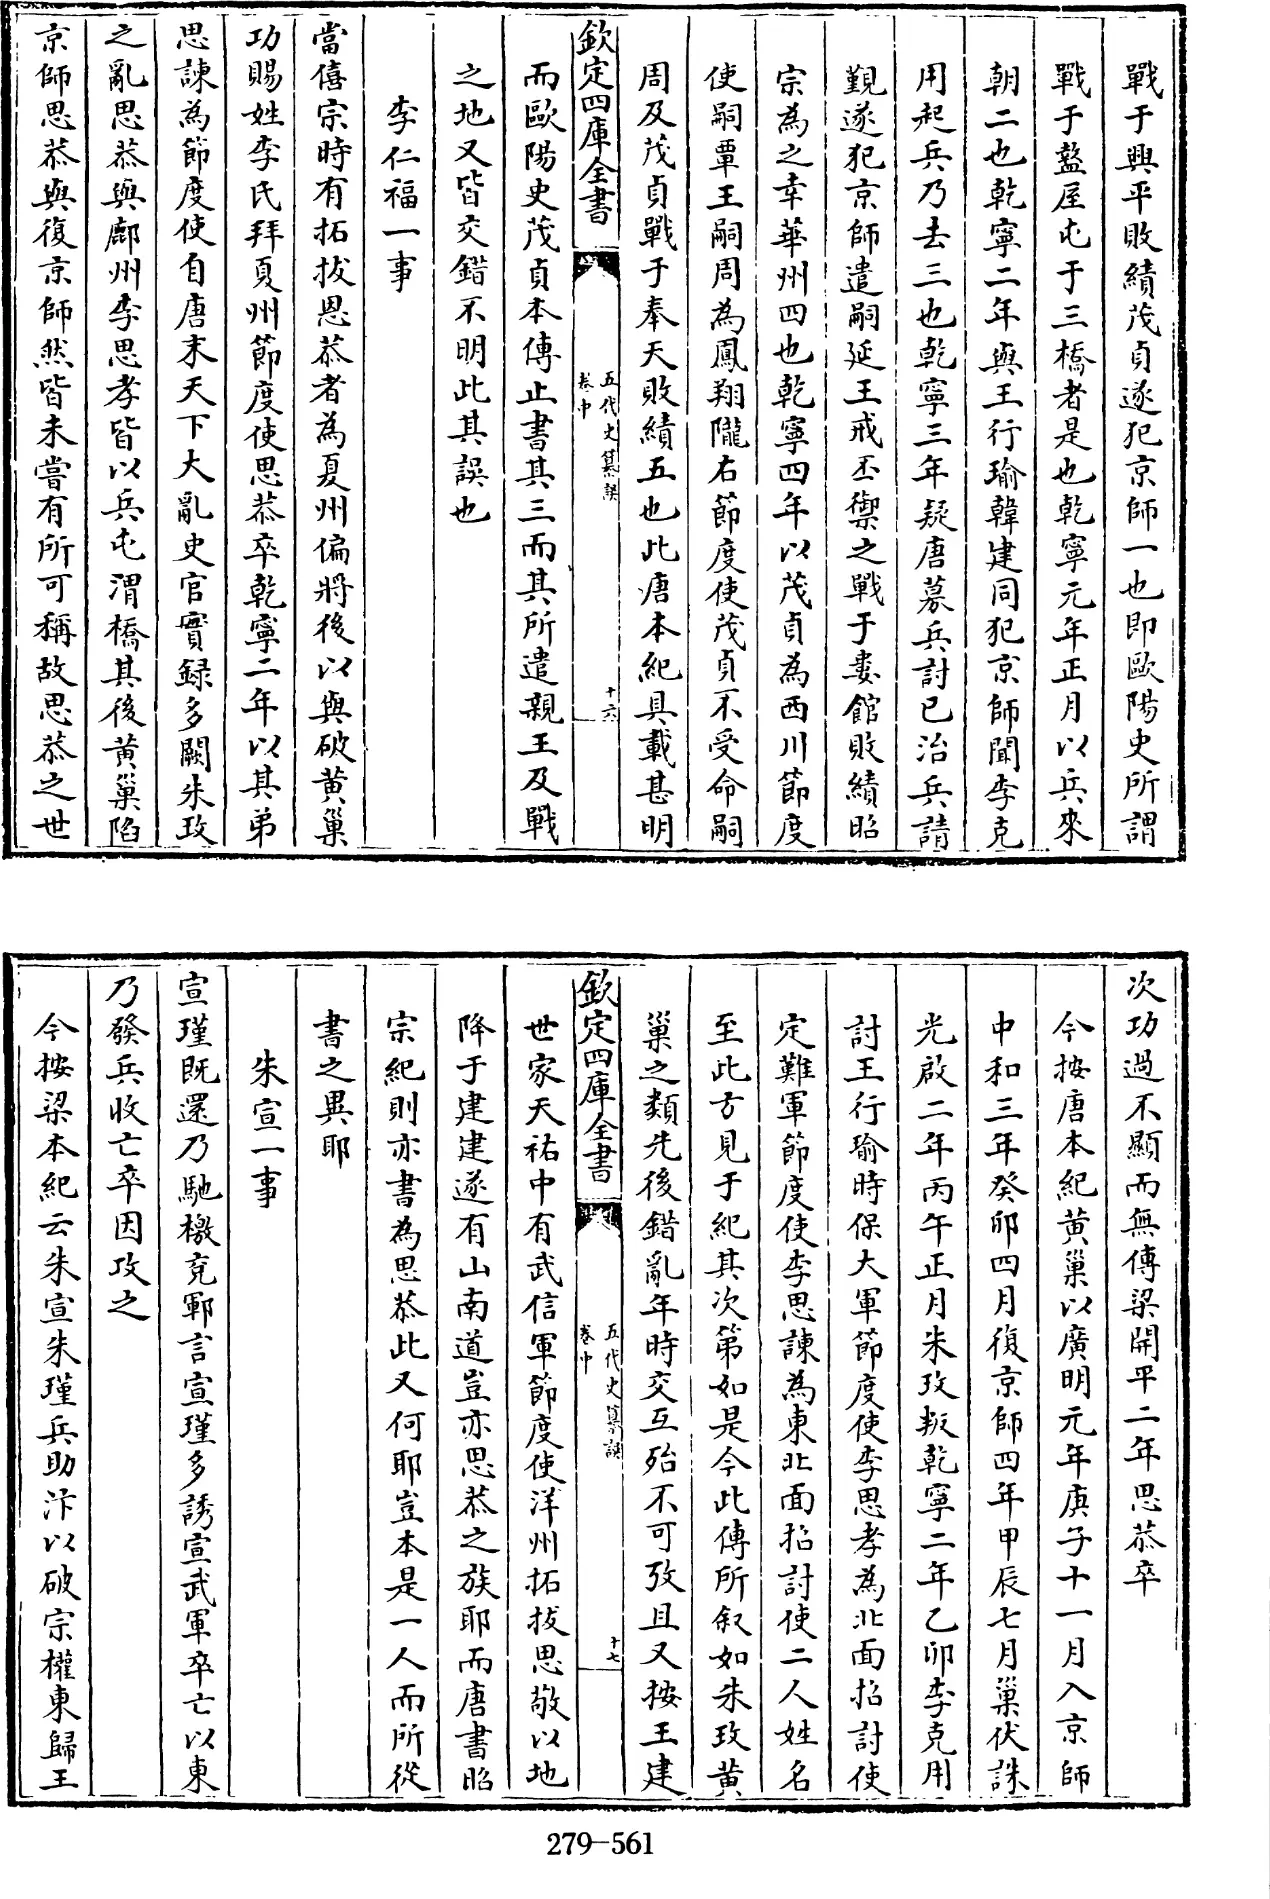 戰于興平敗績茂貞遂犯京師一也即歐陽史所謂
戰于盩厔屯于三橋者是也乾寧元年正月以兵來
朝二也乾寧二年與王行瑜韓建同犯京師聞李克
用起兵乃去三也乾寧三年疑唐募兵討已治兵請
覲遂犯京師遣嗣延王戒丕禦之戰于婁館敗績昭
宗為之幸華州四也乾寧四年以茂貞為西川節度
使嗣覃王嗣周為鳳翔隴右節度使茂貞不受命嗣
周及茂貞戰于奉天敗績五也此唐本紀具載甚明
欽定四庫全書
五代史纂誤
卷中
十六
而歐陽史茂貞本傳止書其三而其所遣親王及戰
之地又皆交錯不明此其誤也
李仁福一事
當僖宗時有拓拔思恭者為夏州偏將後以與破黃巢
功賜姓李氏拜夏州節度使思恭卒乾寧二年以其弟
思諫為節度使自唐末天下大亂史官實録多闕朱玫
之亂思恭與鄜州李思孝皆以兵屯渭橋其後黃巢陷
京師思恭與復京師然皆未嘗有所可稱故思恭之世
次功過不顯而無傳梁開平二年思恭卒
今按唐本紀黃巢以廣明元年庚子十一月入京師
中和三年癸卯四月復京師四年甲辰七月巢伏誅
光啟二年丙午正月朱玫叛乾寧二年乙卯李克用
討王行瑜時保大軍節度使李思孝為北面招討使
定難軍節度使李思諫為東北面招討使二人姓名
至此方見于紀其次第如是今此傳所叙如朱玫黃
巢之類先後錯亂年時交互殆不可攷且又按王建
欽定四庫全書
五代史纂誤
卷中
十七
世家天祐中有武信軍節度使洋州拓拔思敬以地
降于建建遂有山南道豈亦思恭之族耶而唐書昭
宗紀則亦書為思恭此又何耶豈本是一人而所從
書之異耶
朱宣一事
宣瑾既還乃馳檄兗鄆言宣瑾多誘宣武軍卒亡以東
乃發兵收亡卒因攻之
今按梁本紀云朱宣朱瑾兵助汴以破宗權東歸王
279-561